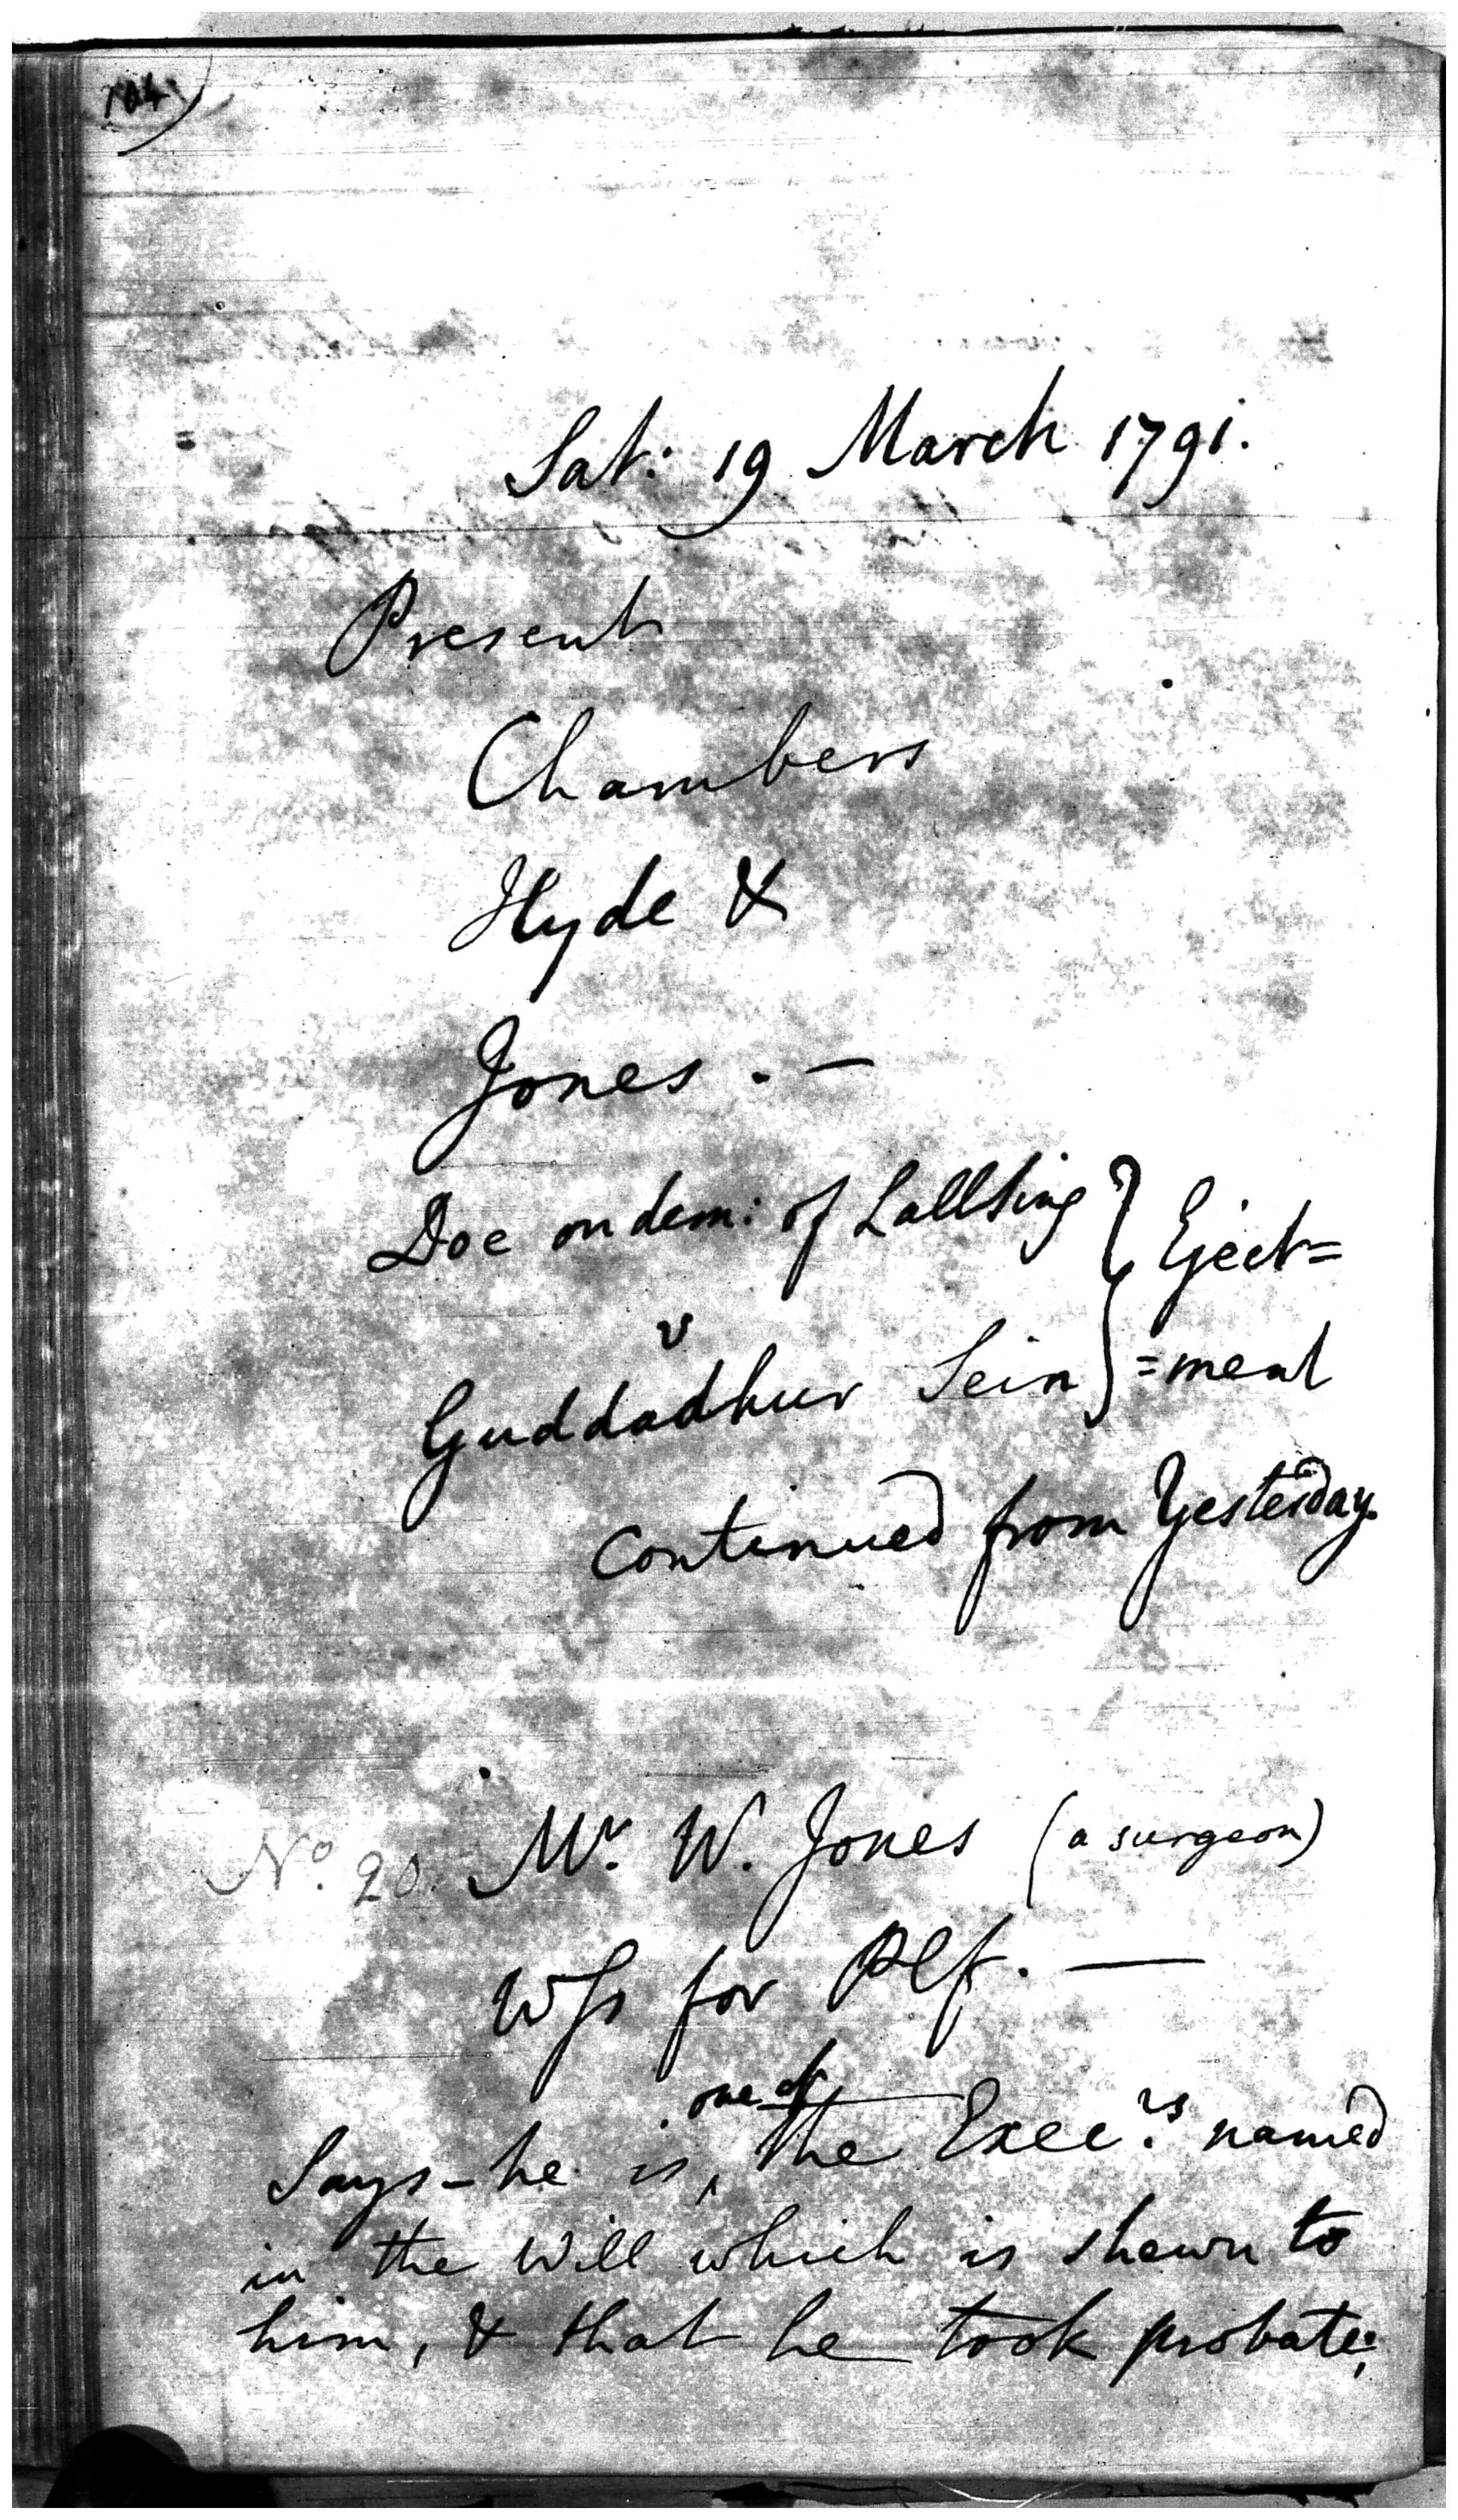 104)
Sat: 19 March 1791.
Present
Chambers
Hyde &
Jones. —
Doe on dem: of Lallsing } Eject=
v
Guddadhur Sein } =ment
continued from Yesterday.
No. 20. Mr. W. Jones (a surgeon)
Wss for Plf. —
one of
Says - he is ‸ the Execrs. named
in the Will which is shewn to
him, & that he took probate;